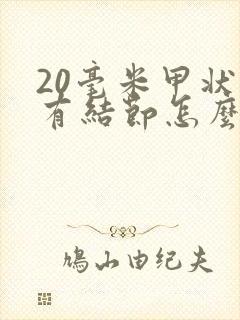 20毫米甲状
有結節怎麼
鳩山由纪夫